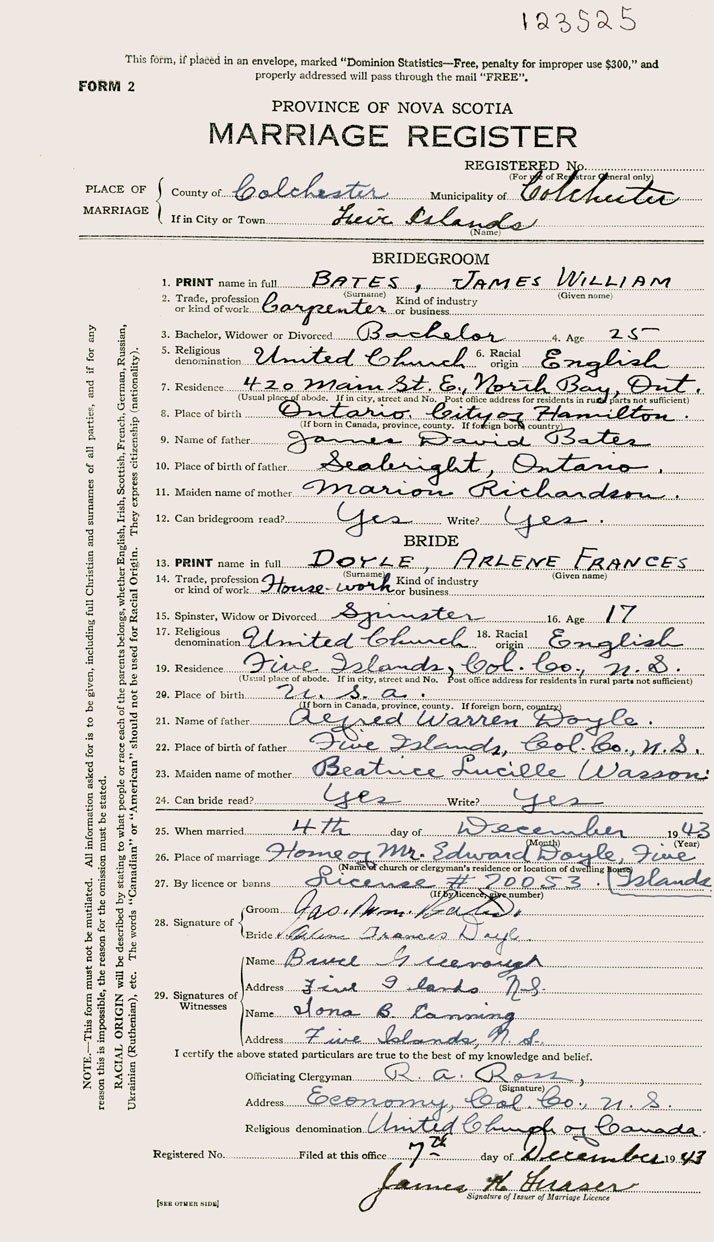 123525
This form, if placed in an envelope, marked "Dominion Statistics—Free, penalty for improper use $300," and
properly addressed will pass through the mail "FREE".
FORM 2
PROVINCE OF NOVA SCOTIA
MARRIAGE REGISTER
REGISTERED No.
(For use of Registrar General only)
PLACE OF MARRIAGE
County of Colchester Municipality of Colchester
If in City or Town Five Islands
(Name)
BRIDEGROOM
1. PRINT name in full BATES, JAMES WILLIAM
(Surname) (Given name)
2. Trade, profession or kind of work Carpenter Kind of industry or business
3. Bachelor, Widower or Divorced Bachelor 4. Age 25
5. Religious denomination United Church 6. Racial origin English
7. Residence 420 Main St. E., North Bay, Ont.
(Usual place of abode. If in city, street and No. Post office address for residents in rural parts not sufficient)
8. Place of birth Ontario. City of Hamilton.
(If born in Canada, province, county. If foreign born, country)
9. Name of father James David Bates
10. Place of birth of father Seabright, Ontario.
11. Maiden name of mother Marion Richardson.
12. Can bridegroom read? Yes Write? Yes.
BRIDE
13. PRINT name in full DOYLE, ARLENE FRANCES
(Surname) (Given name)
14. Trade, profession or kind of work House-work Kind of industry or business
15. Spinster, Widow or Divorced Spinster 16. Age 17
17. Religious denomination United Church 18. Racial origin English
19. Residence Five Islands, Col. Co., N.S.
(Usual place of abode. If in city, street and No. Post office address for residents in rural parts not sufficient)
20. Place of birth U.S.A.
(If born in Canada, province, county. If foreign born, country)
21. Name of father Alfred Warren Doyle.
22. Place of birth of father Five Islands, Col. Co., N.S.
23. Maiden name of mother Beatrice Lucille Wasson.
24. Can bride read? Yes Write? Yes
25. When married 4th day of December 1943
(Month) (Year)
26. Place of marriage Home of Mr. Edward Doyle, Five Islands
(Name of church or clergyman's residence or location of dwelling house)
27. By licence or banns License # 70053.
(If by licence, give number)
28. Signature of
Groom Jas. Wm. Bates.
Bride Arlene Frances Doyle
29. Signatures of Witnesses
Name Bruce Greenough
Address Five Islands N.S.
Name Iona B. Canning
Address Five Islands, N.S.
I certify the above stated particulars are true to the best of my knowledge and belief.
Officiating Clergyman R. A. Ross,
(Signature)
Address Economy, Col. Co., N.S.
Religious denomination United Church of Canada.
Registered No. Filed at this office 7th day of December 1943
James H. Fraser
Signature of Issuer of Marriage Licence
[SEE OTHER SIDE]
NOTE.—This form must not be mutilated. All information asked for is to be given, including full Christian and surnames of all parties, and if for any
reason this is impossible, the reason for the omission must be stated.
RACIAL ORIGIN will be described by stating to what people or race each of the parents belongs, whether English, Irish, Scottish, French, German, Russian,
Ukrainian (Ruthenian), etc. The words "Canadian" or "American" should not be used for Racial Origin. They express citizenship (nationality).